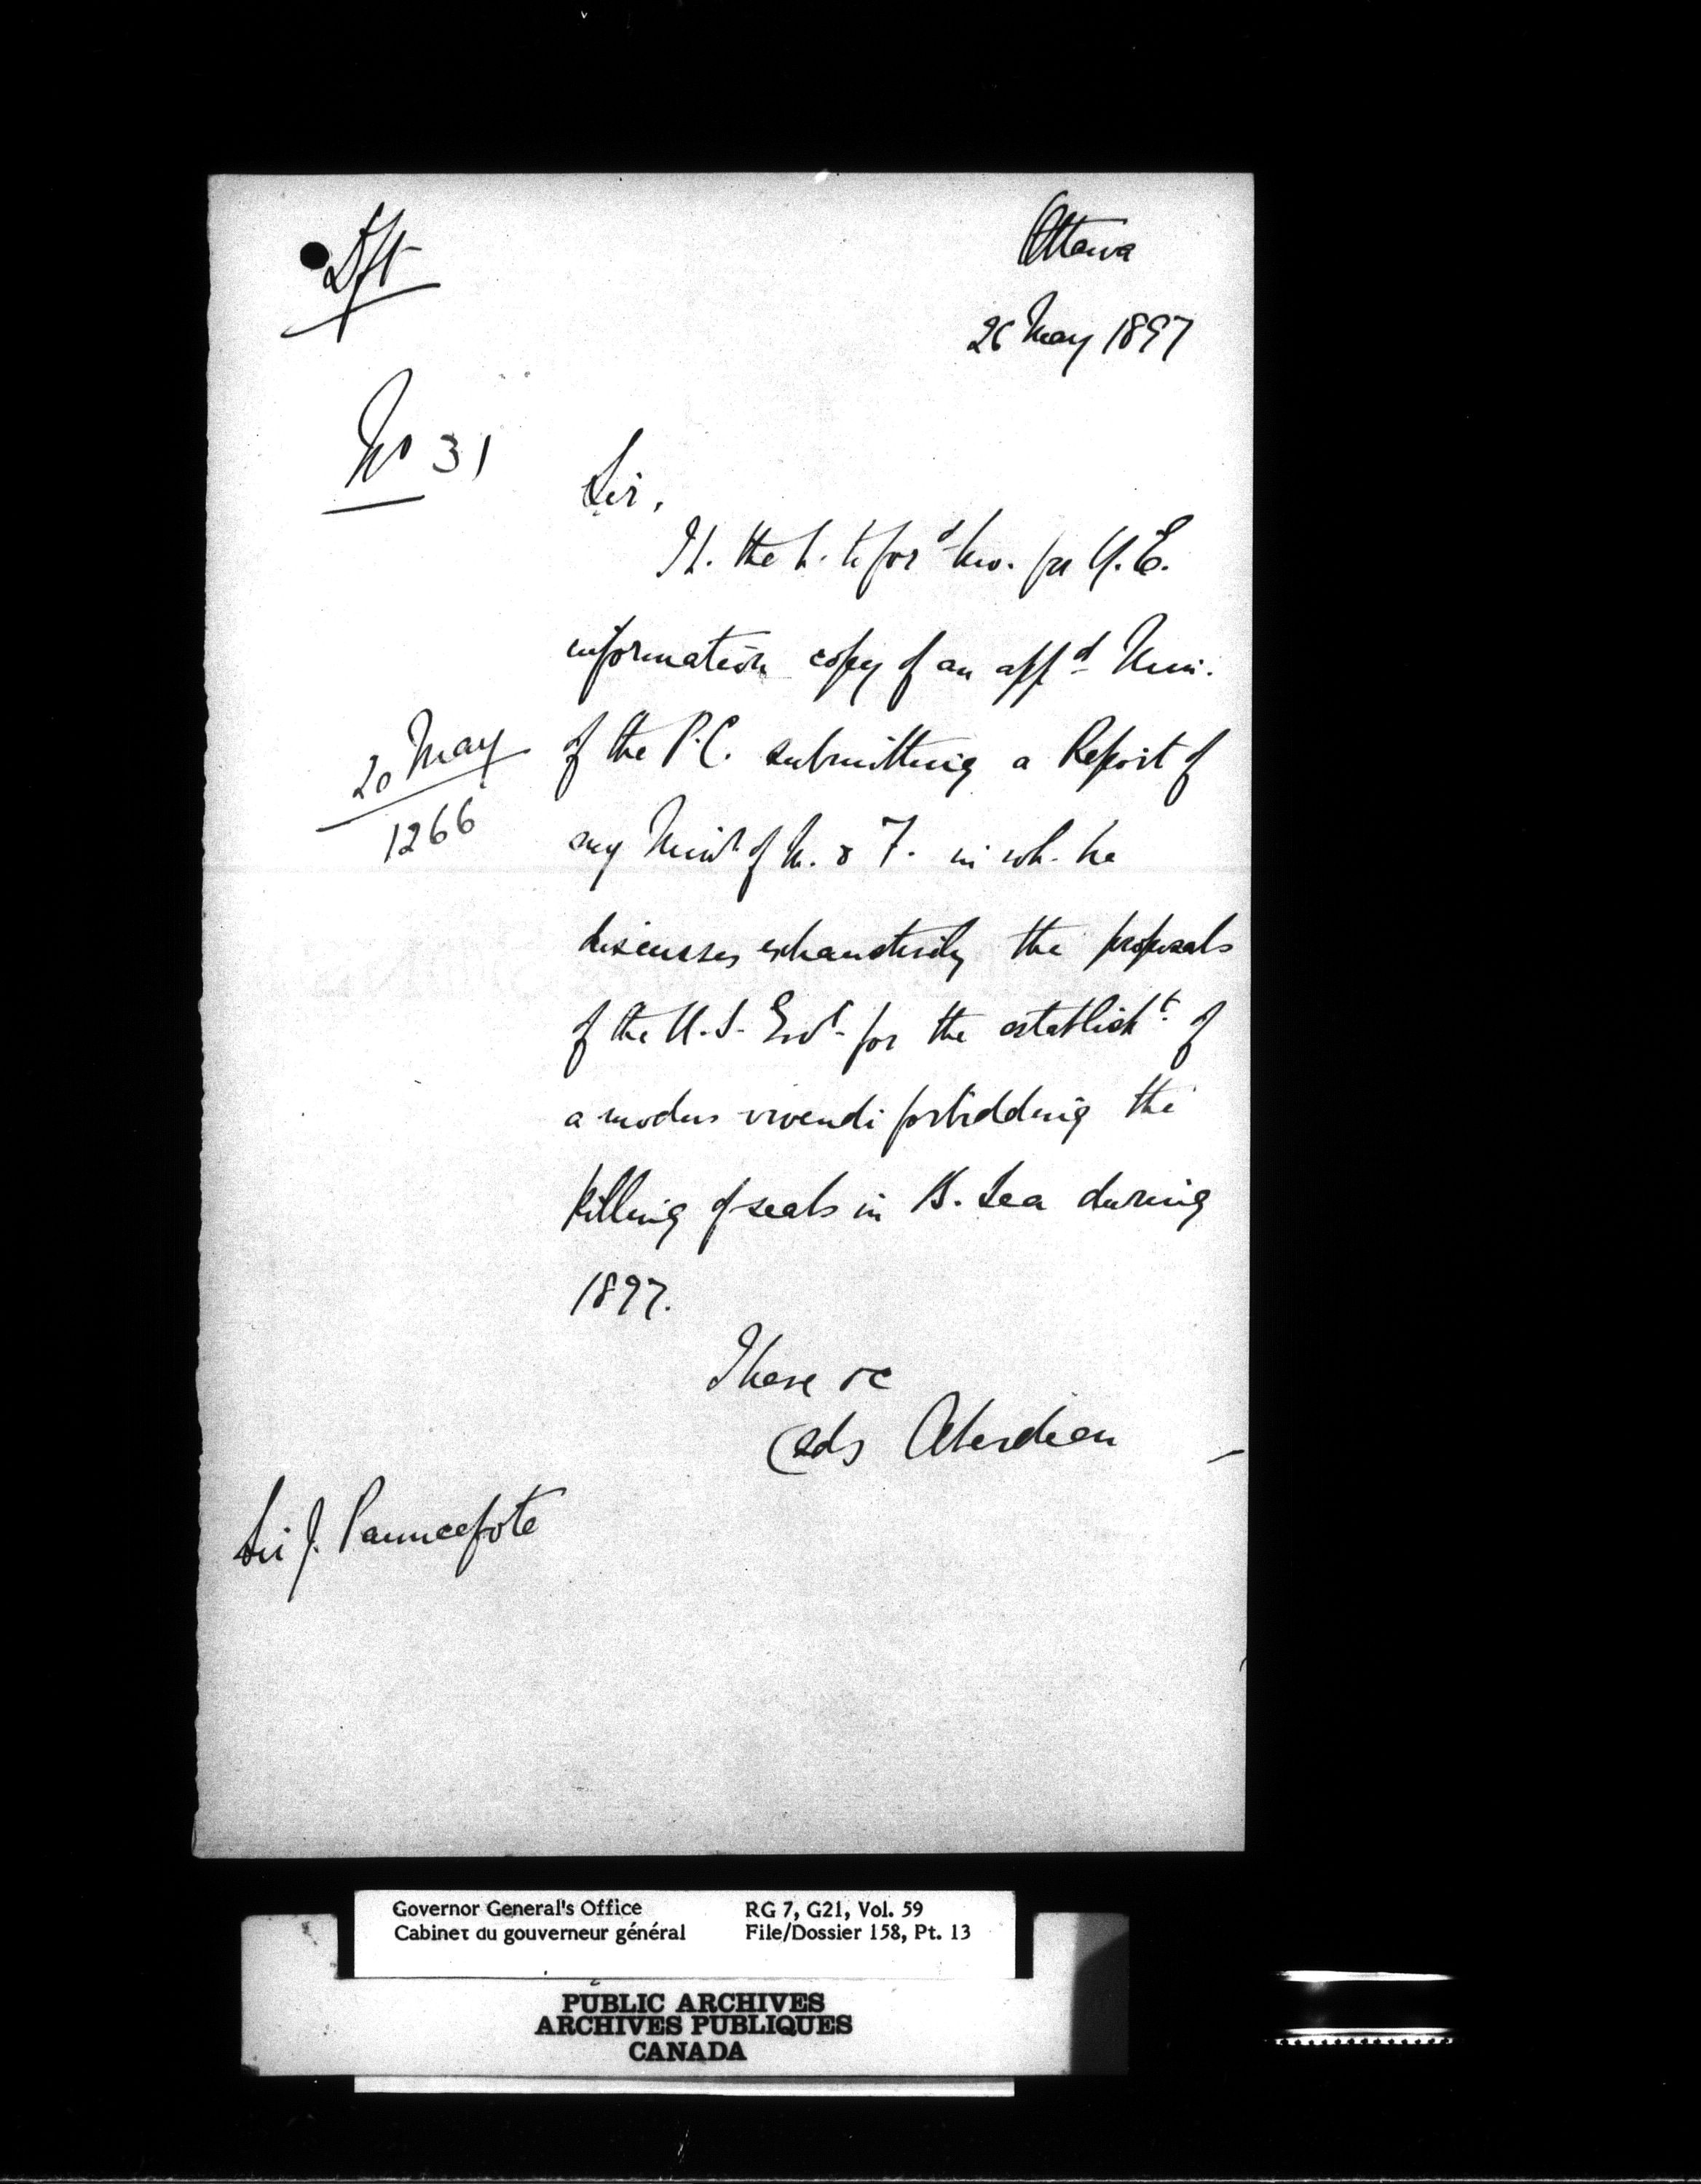 Dft
Ottawa
26 May 1897
No 31
Sir,
I h. the h. to for^d h.w. for Y.E.
information copy of an app^d Min.
20 May
1266
of the P.C. submitting a Report of
my Min^r of M. & F. in wh. he
discusses exhaustively the proposals
of the U.S. Gov^t for the establish^t of
a modus vivendi forbidding the
killing of seals in B. Sea during
1897.
I have &c
(sd) Aberdeen
Sir J. Pauncefote
Governor General's Office
Cabinet du gouverneur général
RG 7, G21, Vol. 59
File/Dossier 158, Pt. 13
PUBLIC ARCHIVES
ARCHIVES PUBLIQUES
CANADA